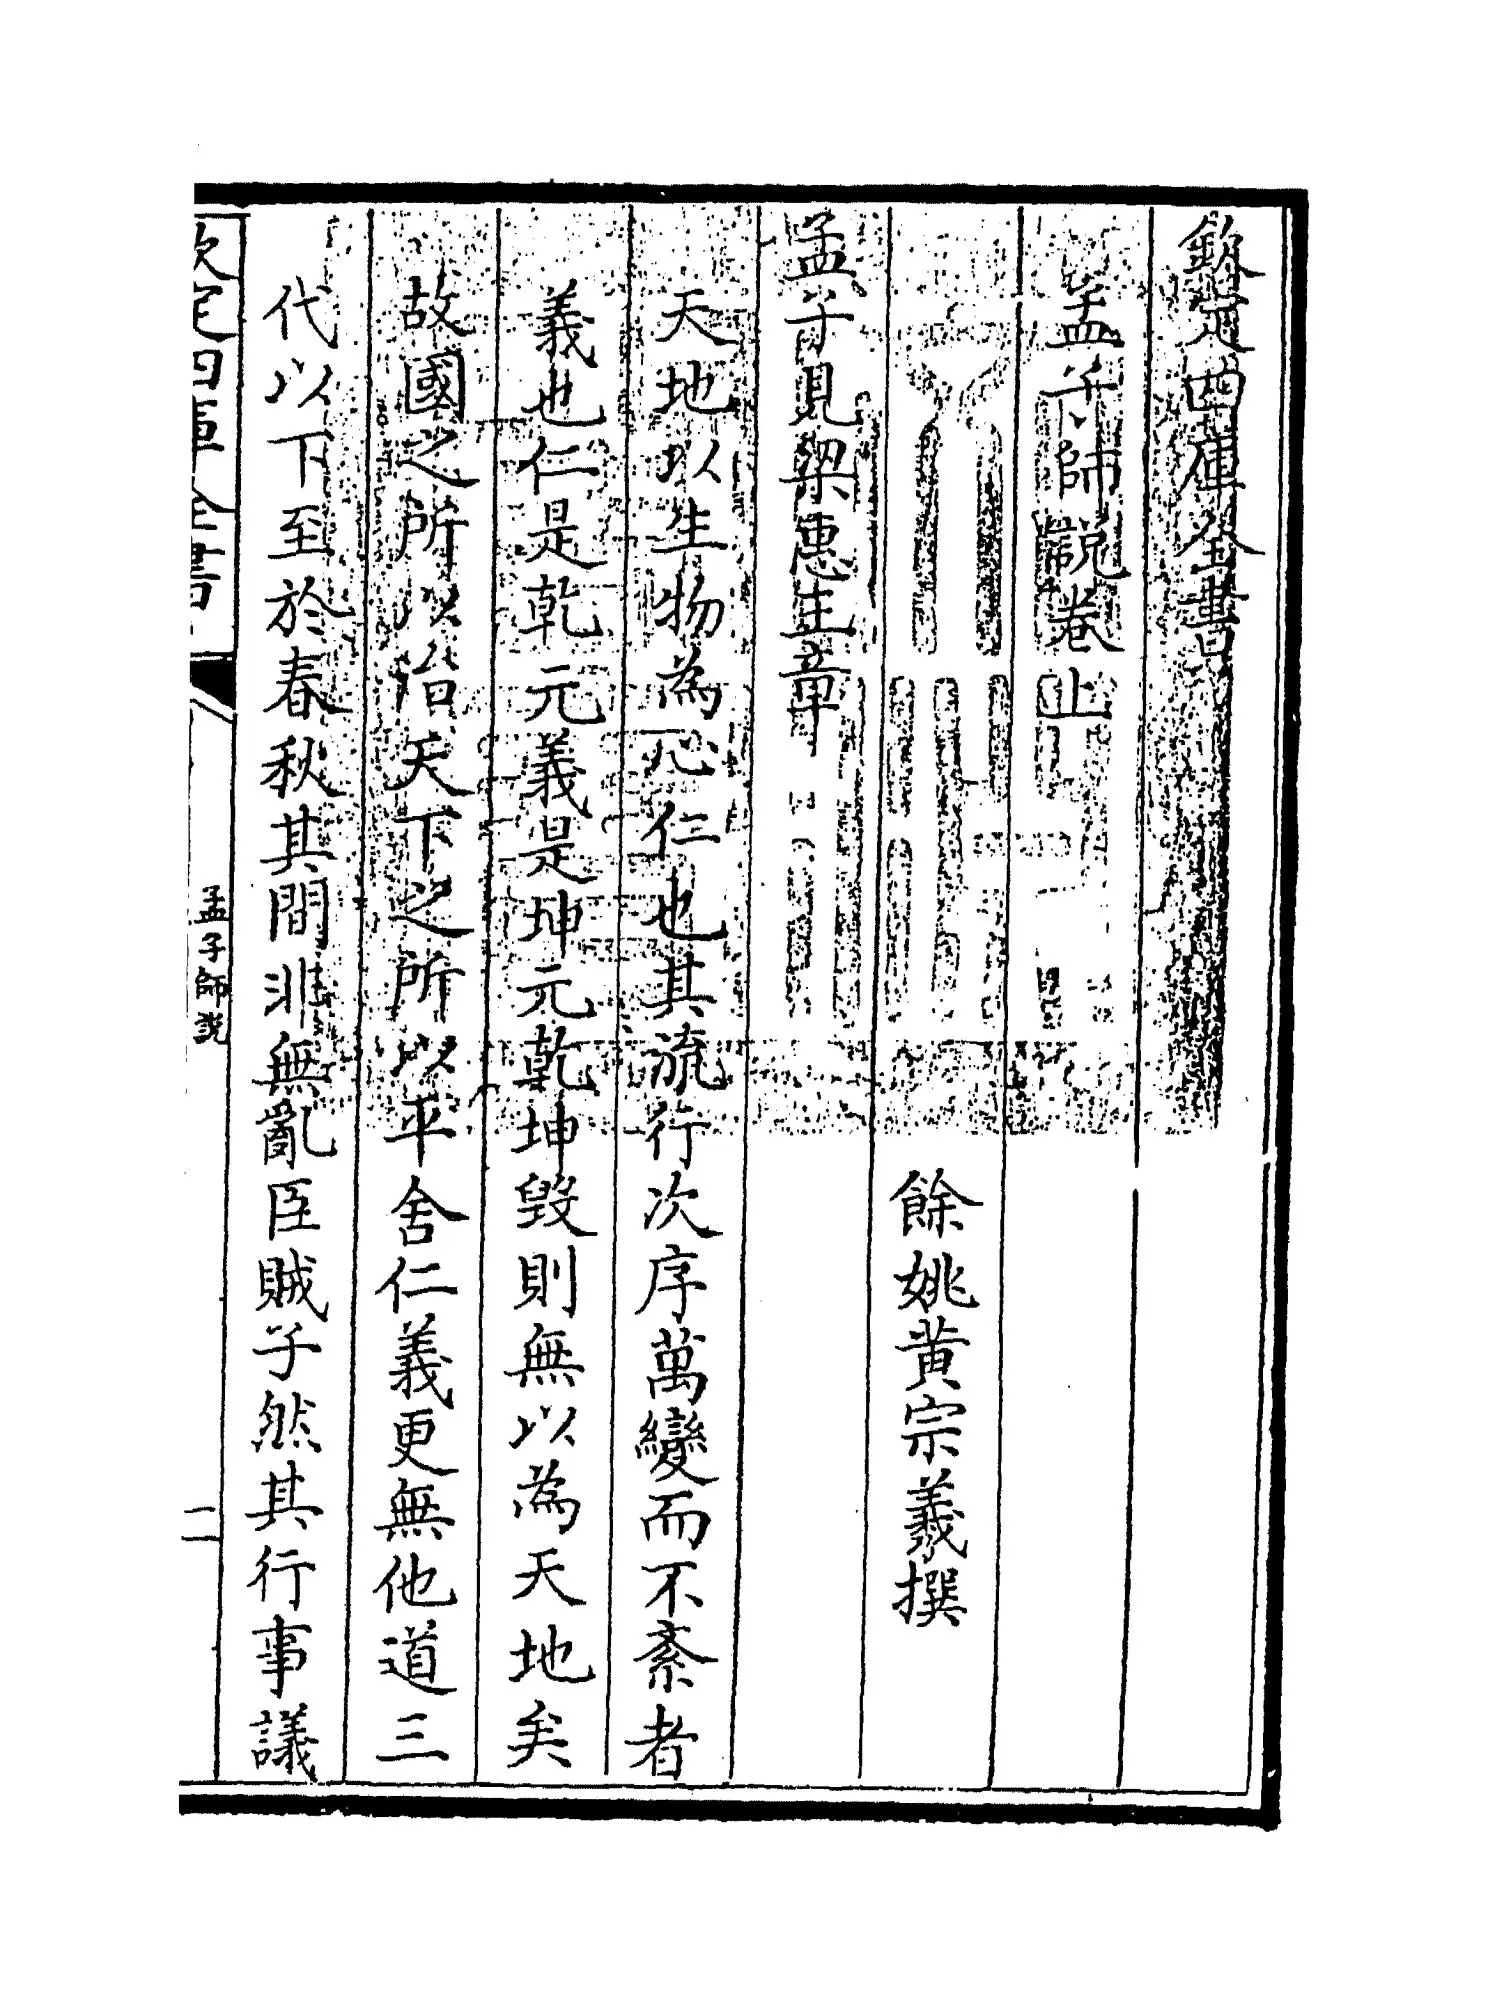 欽定四庫全書
孟子師說卷上
餘姚黃宗羲撰
孟子見梁惠王章
天地以生物為心仁也其流行次序萬變而不紊者
義也仁是乾元義是坤元乾坤毀則無以為天地矣
故國之所以治天下之所以平舍仁義更無他道三
代以下至於春秋其間非無亂臣賊子然其行事議
欽定四庫全書
孟子師說
二